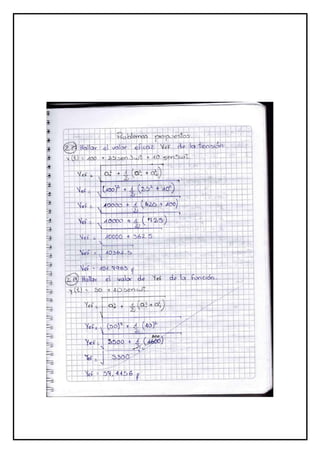 Problemas propuestos
2.17 Hallar el valor eficaz Yef de la tensión
v(t) = 100 + 25 sen 3wt + 10 sen 5wt
Yef = √ a₀² + 1/2 (a₁² + a₂²)
Yef = √ (100)² + 1/2 (25² + 10²)
Yef = √ 10000 + 1/2 (625 + 100)
Yef = √ 10000 + 1/2 (725)
Yef = √ 10000 + 362.5
Yef = √ 10362.5
Yef =
Hallar el valor de Yef de la función.
y(t) = 50 + 40 sen wt
Yef = √ a₀² + 1/2 (a₁² + a₂²)
Yef = √ (50)² + 1/2 (40)²
Yef = √ 2500 + 1/2 (1600)
Yef = √ 3300
Yef = 57,4456